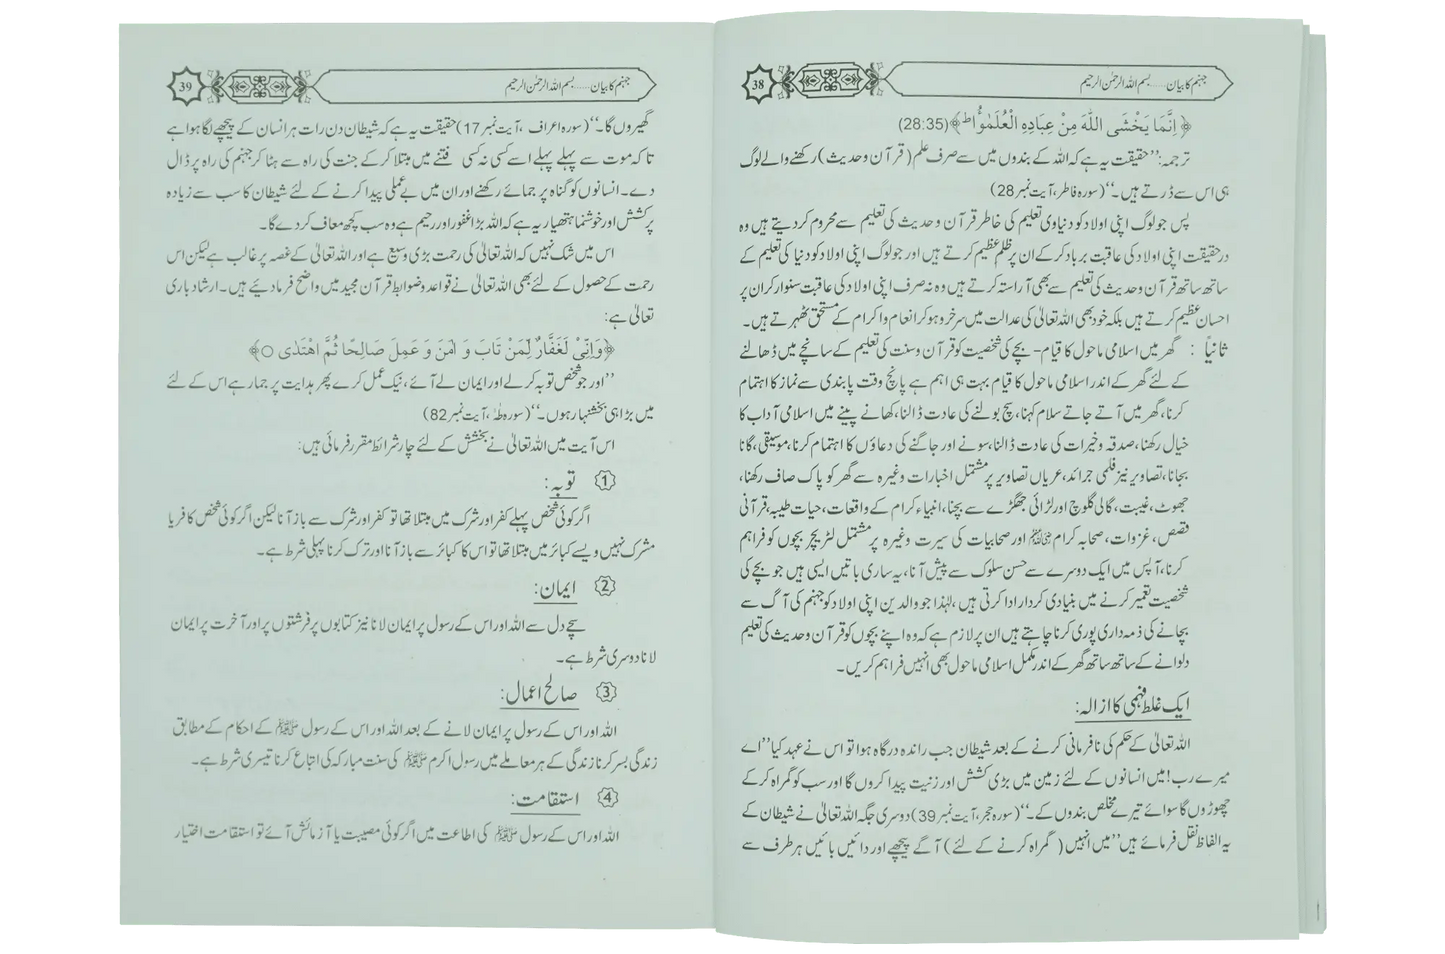 جہنم کا بیان......بسم اللہ الرحمٰن الرحیم
38
﴿ اِنَّمَا یَخْشَی اللّٰہَ مِنْ عِبَادِہِ الْعُلَمٰؤُاط﴾(28:35)
ترجمہ:’’حقیقت یہ ہے کہ اللہ کے بندوں میں سے صرف علم( قرآن وحدیث)رکھنے والے لوگ
ہی اس سے ڈرتے ہیں۔‘‘(سورہ فاطر،آیت نمبر28)
پس جولوگ اپنی اولاد کو دنیاوی تعلیم کی خاطر قرآن وحدیث کی تعلیم سے محروم کردیتے ہیں وہ
درحقیقت اپنی اولاد کی عاقبت برباد کرکے ان پر ظلم عظیم کرتے ہیں اور جولوگ اپنی اولاد کو دنیا کی تعلیم کے
ساتھ ساتھ قرآن وحدیث کی تعلیم سے بھی آراستہ کرتے ہیں وہ نہ صرف اپنی اولاد کی عاقبت سنوار کر ان پر
احسان عظیم کرتے ہیں بلکہ خود بھی اللہ تعالیٰ کی عدالت میں سرخرو ہوکر انعام واکرام کے مستحق ٹھہرتے ہیں۔
ثانیاً : گھر میں اسلامی ماحول کا قیام- بچے کی شخصیت کو قرآن وسنت کی تعلیم کے سانچے میں ڈھالنے
کے لئے گھر کے اندر اسلامی ماحول کا قیام بہت ہی اہم ہے پانچ وقت پابندی سے نماز کا اہتمام
کرنا،گھر میں آتے جاتے سلام کہنا،سچ بولنے کی عادت ڈالنا،کھانے پینے میں اسلامی آداب کا
خیال رکھنا،صدقہ وخیرات کی عادت ڈالنا،سونے اور جاگنے کی دعاؤں کا اہتمام کرنا،موسیقی،گانا
بجانا،تصاویر نیز فلمی جرائد،عریاں تصاویر پر مشتمل اخبارات وغیرہ سے گھر کو پاک صاف رکھنا،
جھوٹ،غیبت،گالی گلوچ اور لڑائی جھگڑے سے بچنا،انبیاء کرام کے واقعات،حیات طیبہ،قرآنی
قصص،غزوات،صحابہ کرام ﷺ اور صحابیات کی سیرت وغیرہ پر مشتمل لٹریچر بچوں کو فراہم
کرنا،آپس میں ایک دوسرے سے حسن سلوک سے پیش آنا،یہ ساری باتیں ایسی ہیں جو بچے کی
شخصیت تعمیر کرنے میں بنیادی کردار ادا کرتی ہیں،لہٰذا جو والدین اپنی اولاد کو جہنم کی آگ سے
بچانے کی ذمہ داری پوری کرنا چاہتے ہیں ان پر لازم ہے کہ وہ اپنے بچوں کو قرآن وحدیث کی تعلیم
دلوانے کے ساتھ ساتھ گھر کے اندر مکمل اسلامی ماحول بھی انہیں فراہم کریں۔
ایک غلط فہمی کا ازالہ:
اللہ تعالیٰ کے حکم کی نافرمانی کرنے کے بعد شیطان جب راندہ درگاہ ہوا تو اس نے عہد کیا’’اے
میرے رب!میں انسانوں کے لئے زمین میں بڑی کشش اور زینت پیدا کروں گا اور سب کو گمراہ کرکے
چھوڑوں گا سوائے تیرے مخلص بندوں کے۔‘‘(سورہ حجر،آیت نمبر39)دوسری جگہ اللہ تعالیٰ نے شیطان کے
یہ الفاظ نقل فرمائے ہیں’’میں انہیں( گمراہ کرنے کے لئے) آگے پیچھے اور دائیں بائیں ہر طرف سے
جہنم کا بیان......بسم اللہ الرحمٰن الرحیم
39
گھیروں گا۔‘‘(سورہ اعراف ،آیت نمبر17)حقیقت یہ ہے کہ شیطان دن رات ہر انسان کے پیچھے لگا ہوا ہے
تاکہ موت سے پہلے پہلے اسے کسی نہ کسی فتنے میں مبتلا کرکے جنت کی راہ سے ہٹا کر جہنم کی راہ پر ڈال
دے۔انسانوں کو گناہ پر جمائے رکھنے اور ان میں بے عملی پیدا کرنے کے لئے شیطان کا سب سے زیادہ
پرکشش اور خوشنما ہتھیار یہ ہے کہ اللہ بڑا غفور اور رحیم ہے وہ سب کچھ معاف کردے گا۔
اس میں شک نہیں کہ اللہ تعالیٰ کی رحمت بڑی وسیع ہے اور اللہ تعالیٰ کے غصہ پر غالب ہے لیکن اس
رحمت کے حصول کے لئے بھی اللہ تعالیٰ نے قواعد وضوابط قرآن مجید میں واضح فرمادئیے ہیں۔ارشاد باری
تعالیٰ ہے:
﴿وَاِنِّیْ لَغَفَّارٌ لِّمَنْ تَابَ وَ اٰمَنَ وَ عَمِلَ صَالِحًا ثُمَّ اھْتَدٰی ○﴾
’’اور جو شخص توبہ کرلے اور ایمان لے آئے،نیک عمل کرے پھر ہدایت پر جمار ہے اس کے لئے
میں بڑا ہی بخشنہار ہوں۔‘‘(سورہ طٰہٰ،آیت نمبر82)
اس آیت میں اللہ تعالیٰ نے بخشش کے لئے چار شرائط مقرر فرمائی ہیں:
① توبہ:
اگر کوئی شخص پہلے کفر اور شرک میں مبتلا تھا تو کفر اور شرک سے باز آنا لیکن اگر کوئی شخص کافر یا
مشرک نہیں ویسے کبائر میں مبتلا تھا تو اس کا کبائر سے باز آنا اور ترک کرنا پہلی شرط ہے۔
② ایمان:
سچے دل سے اللہ اور اس کے رسول پر ایمان لانا نیز کتابوں پر فرشتوں پر اور آخرت پر ایمان
لانا دوسری شرط ہے۔
③ صالح اعمال:
اللہ اور اس کے رسول پر ایمان لانے کے بعد اللہ اور اس کے رسول ﷺ کے احکام کے مطابق
زندگی بسر کرنا زندگی کے ہر معاملے میں رسول اکرم ﷺ کی سنت مبارکہ کی اتباع کرنا تیسری شرط ہے۔
④ استقامت:
اللہ اور اس کے رسول ﷺ کی اطاعت میں اگر کوئی مصیبت یا آزمائش آئے تو استقامت اختیار